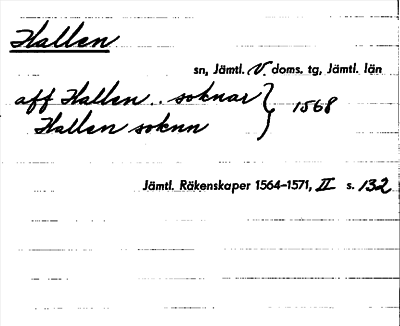 Hallen
sn, Jämtl. V. doms. tg, Jämtl. län
aff Hallen .. soknar } 1568
Hallen soknn
Jämtl. Räkenskaper 1564–1571, II s. 132